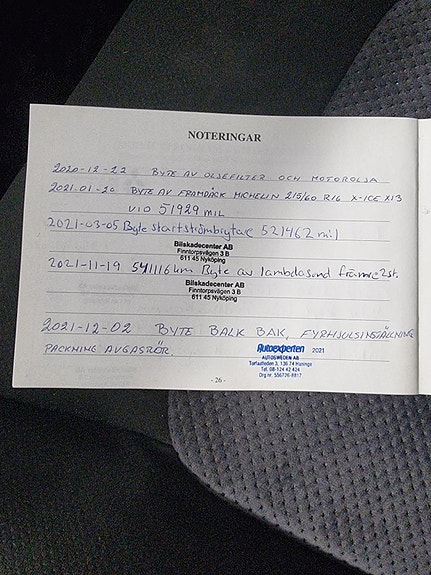 NOTERINGAR
2020-12-22 BYTE AV OLJEFILTER OCH MOTOROLJA
2021-01-20 BYTE AV FRAMDÄCK MICHELIN 215/60 R16 X-ICE XI3
VID 51929 MIL
2021-03-05 Byte startströmbrytare 521462 mil
Bilskadecenter AB
Finntorpsvägen 3 B
611 45 Nyköping
2021-11-19 541116 km Byte av lambdasond främre 2st.
Bilskadecenter AB
Finntorpsvägen 3 B
611 45 Nyköping
2021-12-02 BYTE BALK BAK, FYRHJULSINSTÄLLNING
PACKNING AVGASRÖR.
Autoexperten 2021
AUTOSWEDEN AB
Torfastleden 3, 136 74 Haninge
Tel. 08-124 42 424
Org nr. 556776-8817
- 26 -